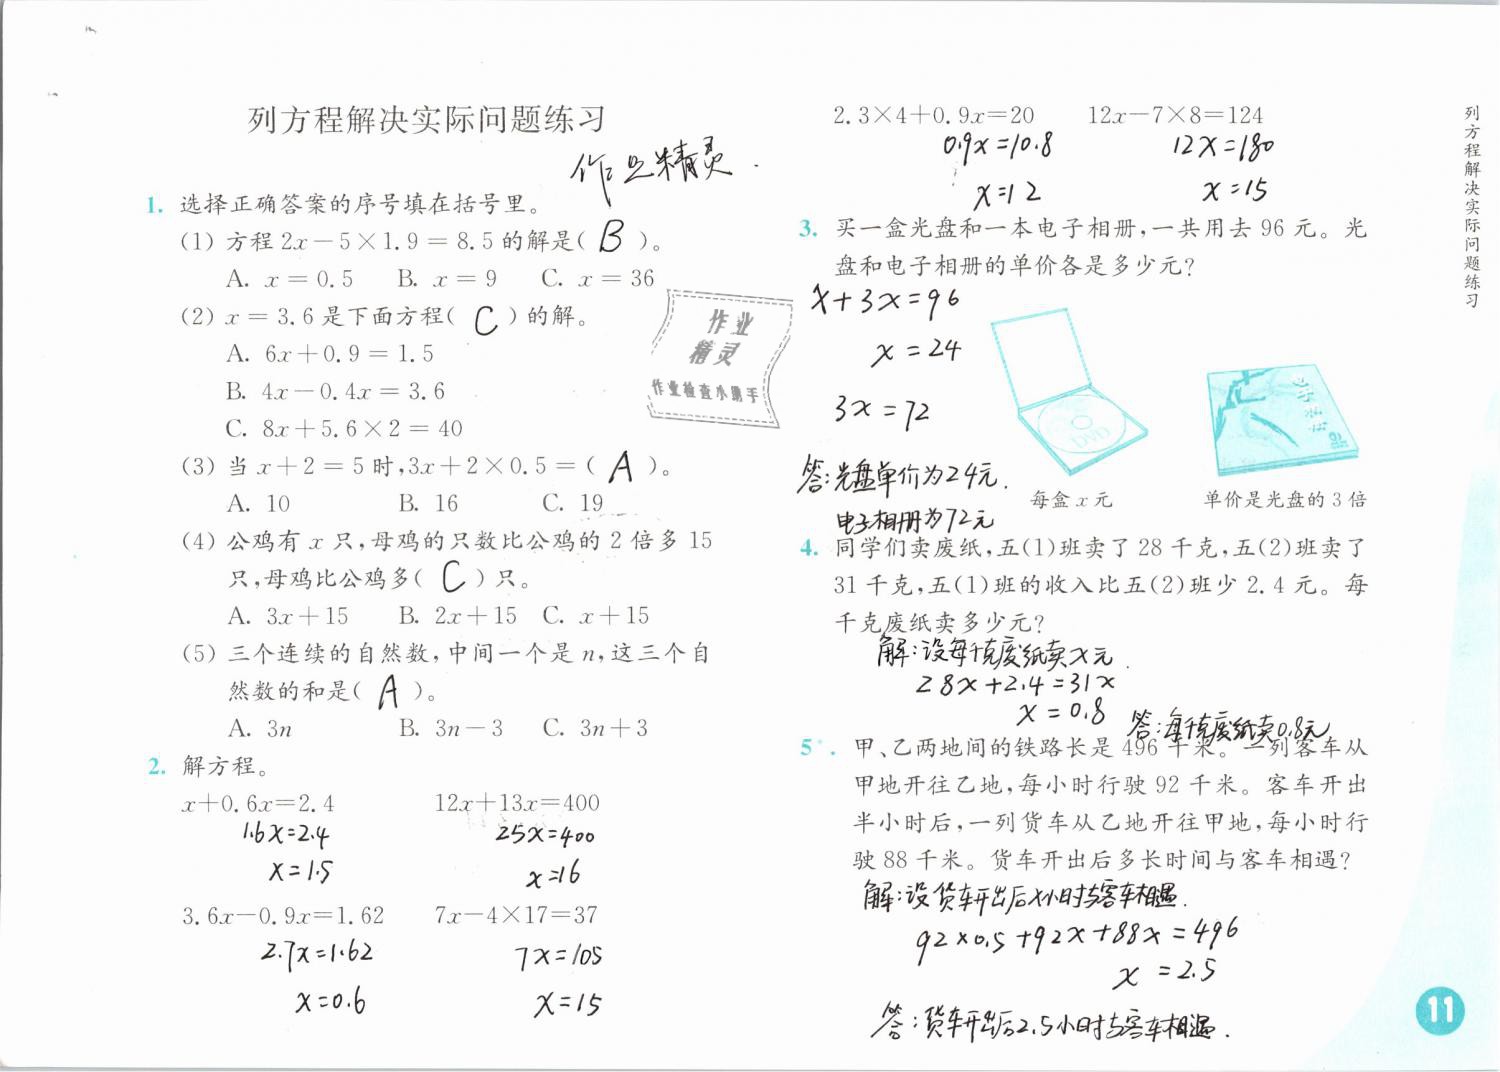 列方程解决实际问题练习
作业精灵
1. 选择正确答案的序号填在括号里。
(1) 方程2x－5×1.9＝8.5的解是( B )。
A. x＝0.5 B. x＝9 C. x＝36
(2) x＝3.6是下面方程( C )的解。
A. 6x＋0.9＝1.5
B. 4x－0.4x＝3.6
C. 8x＋5.6×2＝40
(3) 当x＋2＝5时,3x＋2×0.5＝( A )。
A. 10 B. 16 C. 19
(4) 公鸡有x只,母鸡的只数比公鸡的2倍多15
只,母鸡比公鸡多( C )只。
A. 3x＋15 B. 2x＋15 C. x＋15
(5) 三个连续的自然数,中间一个是n,这三个自
然数的和是( A )。
A. 3n B. 3n－3 C. 3n＋3
2. 解方程。
x＋0.6x＝2.4 12x＋13x＝400
1.6x=2.4 25x=400
x=1.5 x=16
3.6x－0.9x＝1.62 7x－4×17＝37
2.7x=1.62 7x=105
x=0.6 x=15
作业
精灵
作业检查小助手
2.3×4＋0.9x＝20 12x－7×8＝124
0.9x=10.8 12x=180
x=12 x=15
3. 买一盒光盘和一本电子相册,一共用去96元。光
盘和电子相册的单价各是多少元?
x+3x=96
x=24
3x=72
DVD
电子相册
每盒x元 单价是光盘的3倍
答:光盘单价为24元.
电子相册为72元
4. 同学们卖废纸,五(1)班卖了28千克,五(2)班卖了
31千克,五(1)班的收入比五(2)班少2.4元。每
千克废纸卖多少元?
解:设每千克废纸卖x元.
28x+2.4=31x
x=0.8
答:每千克废纸卖0.8元
5*. 甲、乙两地间的铁路长是496千米。一列客车从
甲地开往乙地,每小时行驶92千米。客车开出
半小时后,一列货车从乙地开往甲地,每小时行
驶88千米。货车开出后多长时间与客车相遇?
解:设货车开出后x小时与客车相遇.
92×0.5+92x+88x=496
x=2.5
答:货车开出后2.5小时与客车相遇.
列方程解决实际问题练习
11